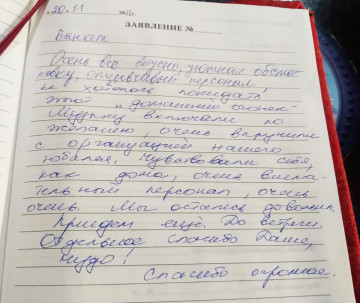 20.11
ЗАЯВЛЕНИЕ №
Банкет
Очень все вкусно, уютная обста-
новку, отзывчивый персонал,
не хотелось покидать
этот домашний очаг.
Музыку включали по
желанию, очень выручили
с организацией нашего
юбилея. Чувствовали себя,
как дома, очень внима-
тельный персонал, очень
очень. Мы остались довольны.
Приедем ещё. До встречи.
Отдельное спасибо Даше,
чудо!
Спасибо огромное.